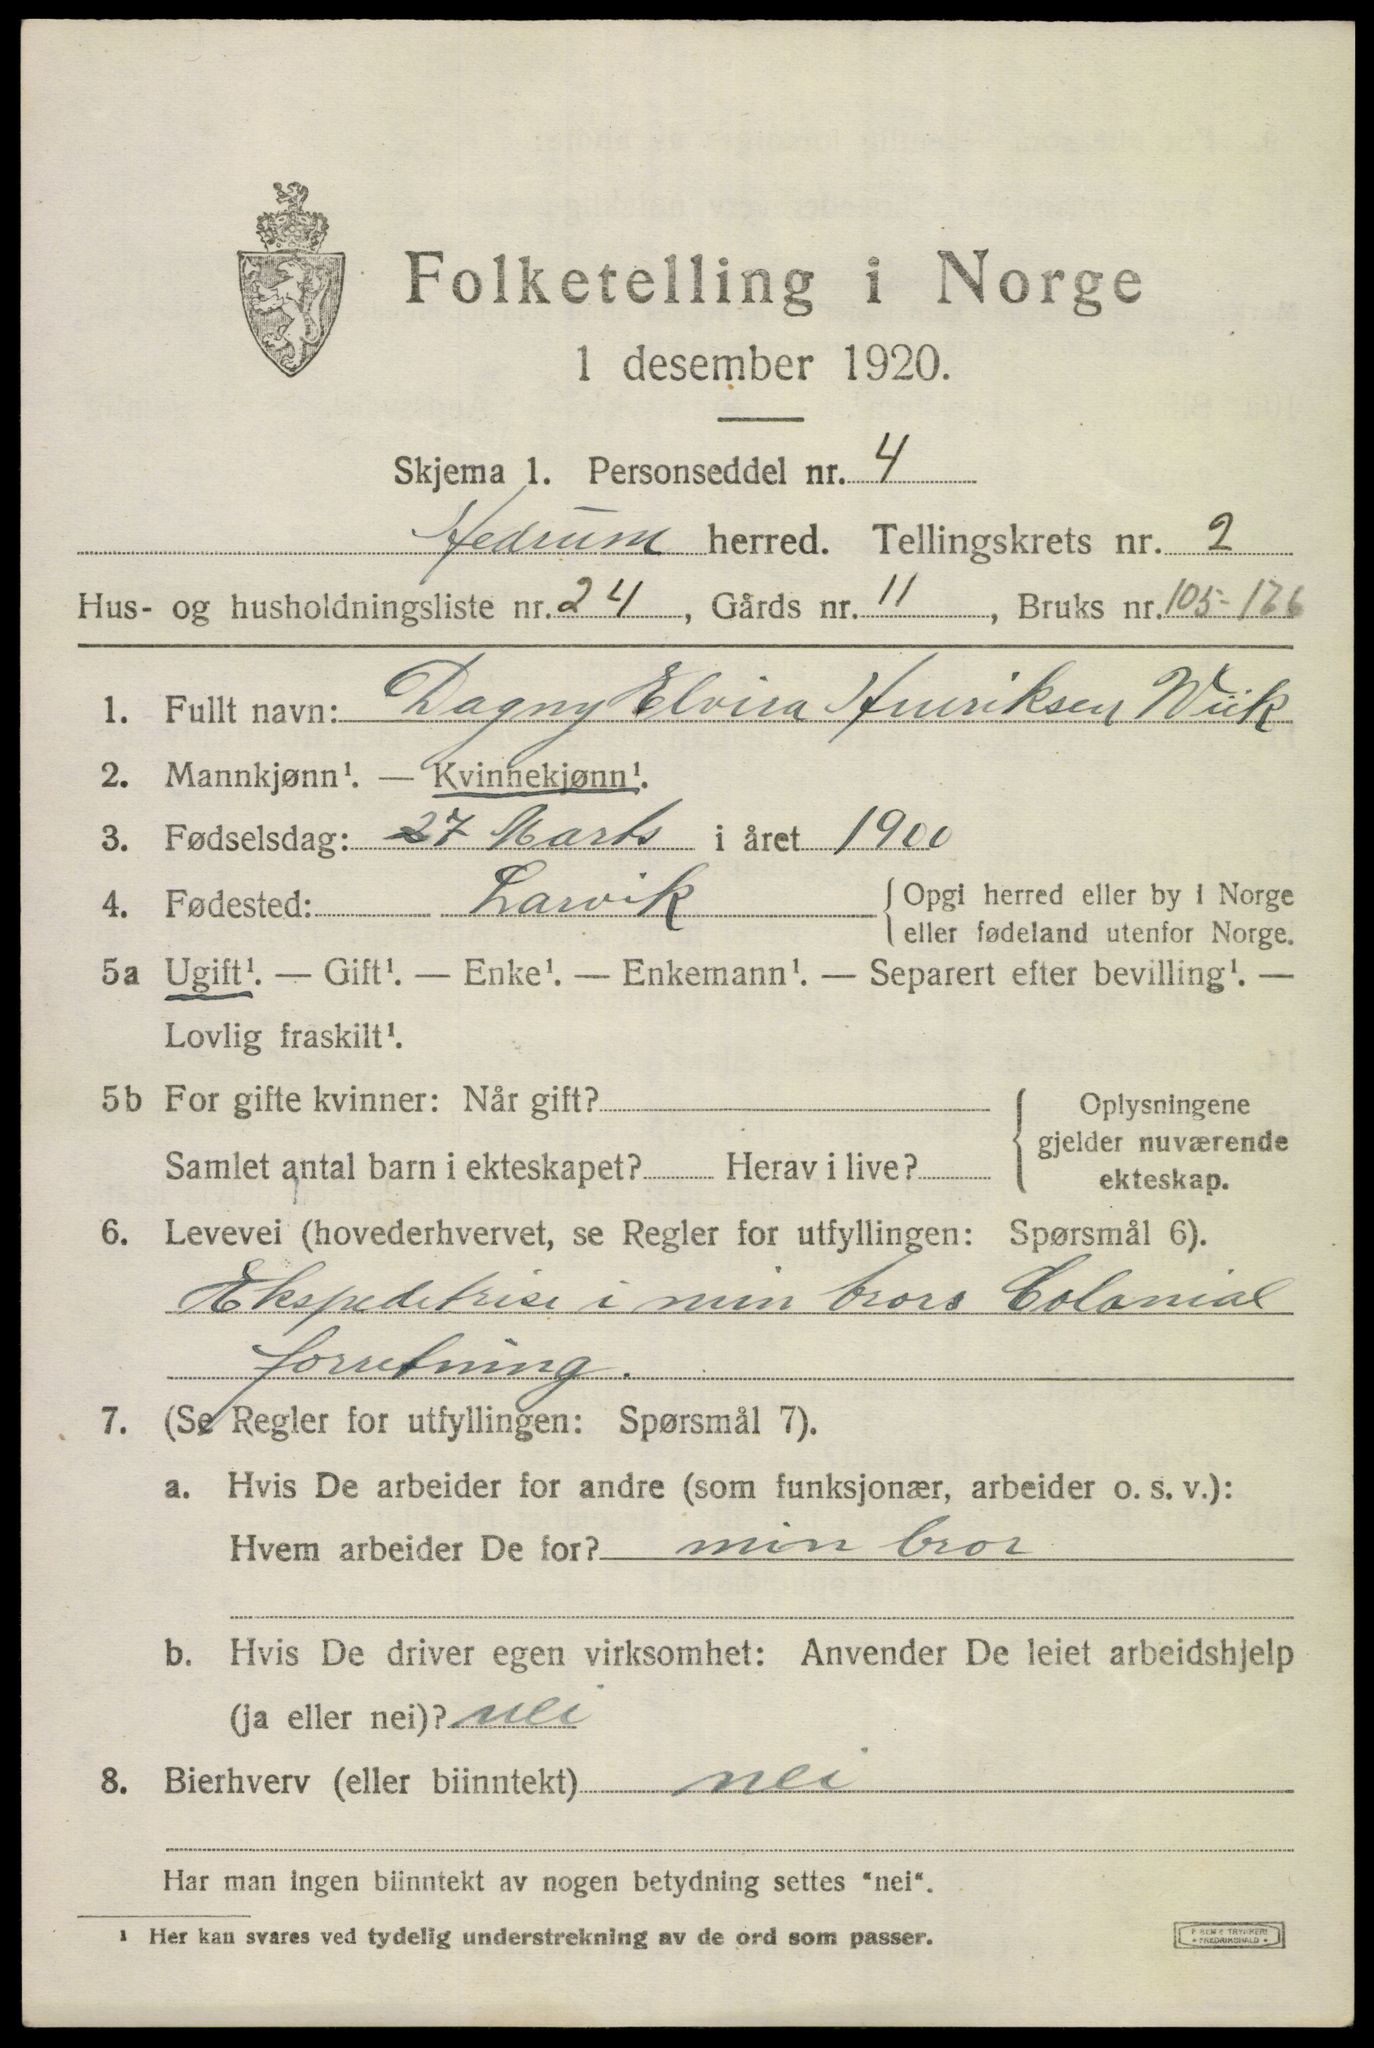 Folketelling i Norge
1 desember 1920.
Skjema 1. Personseddel nr. 4
Hedrum herred. Tellingskrets nr. 2
Hus- og husholdningsliste nr. 24, Gårds nr. 11, Bruks nr. 105-126
1. Fullt navn: Dagny Elvira Henriksen Wiik
2. Mannkjønn¹. — Kvinnekjønn¹.
3. Fødselsdag: 27 Marts i året 1900
4. Fødested: Larvik {Opgi herred eller by i Norge
eller fødeland utenfor Norge.
5a Ugift¹. — Gift¹. — Enke¹. — Enkemann¹. — Separert efter bevilling¹. —
Lovlig fraskilt¹.
5b For gifte kvinner: Når gift?
Samlet antal barn i ekteskapet? Herav i live?
Oplysningene
gjelder nuværende
ekteskap.
6. Levevei (hovederhvervet, se Regler for utfyllingen: Spørsmål 6).
Ekspeditrise i min brors Colonial
forretning.
7. (Se Regler for utfyllingen: Spørsmål 7).
a. Hvis De arbeider for andre (som funksjonær, arbeider o. s. v.):
Hvem arbeider De for? min bror
b. Hvis De driver egen virksomhet: Anvender De leiet arbeidshjelp
(ja eller nei)? nei
8. Bierhverv (eller biinntekt) nei
Har man ingen biinntekt av nogen betydning settes "nei".
¹ Her kan svares ved tydelig understrekning av de ord som passer.